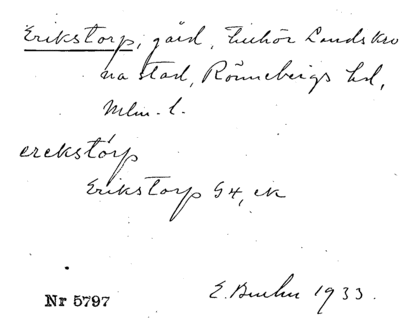 Erikstorp, gård, tillhör Landskro
na stad, Rönnebergs hd,
Mlm. l.
erekstórp
Erikstorp G4, ek
Nr 5797
E. 1933.